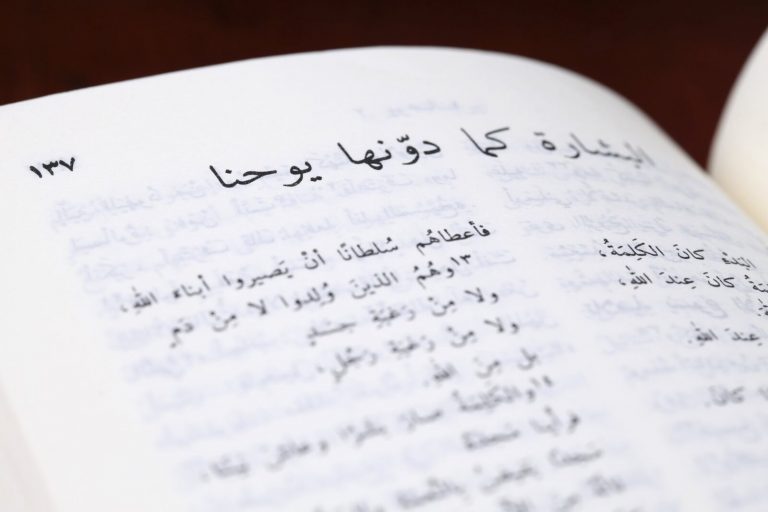 ١٣٧
البشارة كما دوّنها يوحنا
البَدْءِ كانَ الكَلِمَةُ،
كانَ عِندَ اللهِ،
عِندَ اللهِ.
كانَ.
فأعطاهُم سُلطانًا أنْ يَصيروا أبناءَ اللهِ،
١٣وهُمُ الذينَ وُلِدوا لا مِنْ دَمٍ
ولا مِنْ رَغبَةِ جسَدٍ
ولا مِنْ رَغبَةِ رَجُلٍ،
بل مِنَ اللهِ.
والكَلِمَةُ صارَ بشَرًا وعاشَ بَينَنا،
فرأينا مَجدَهُ